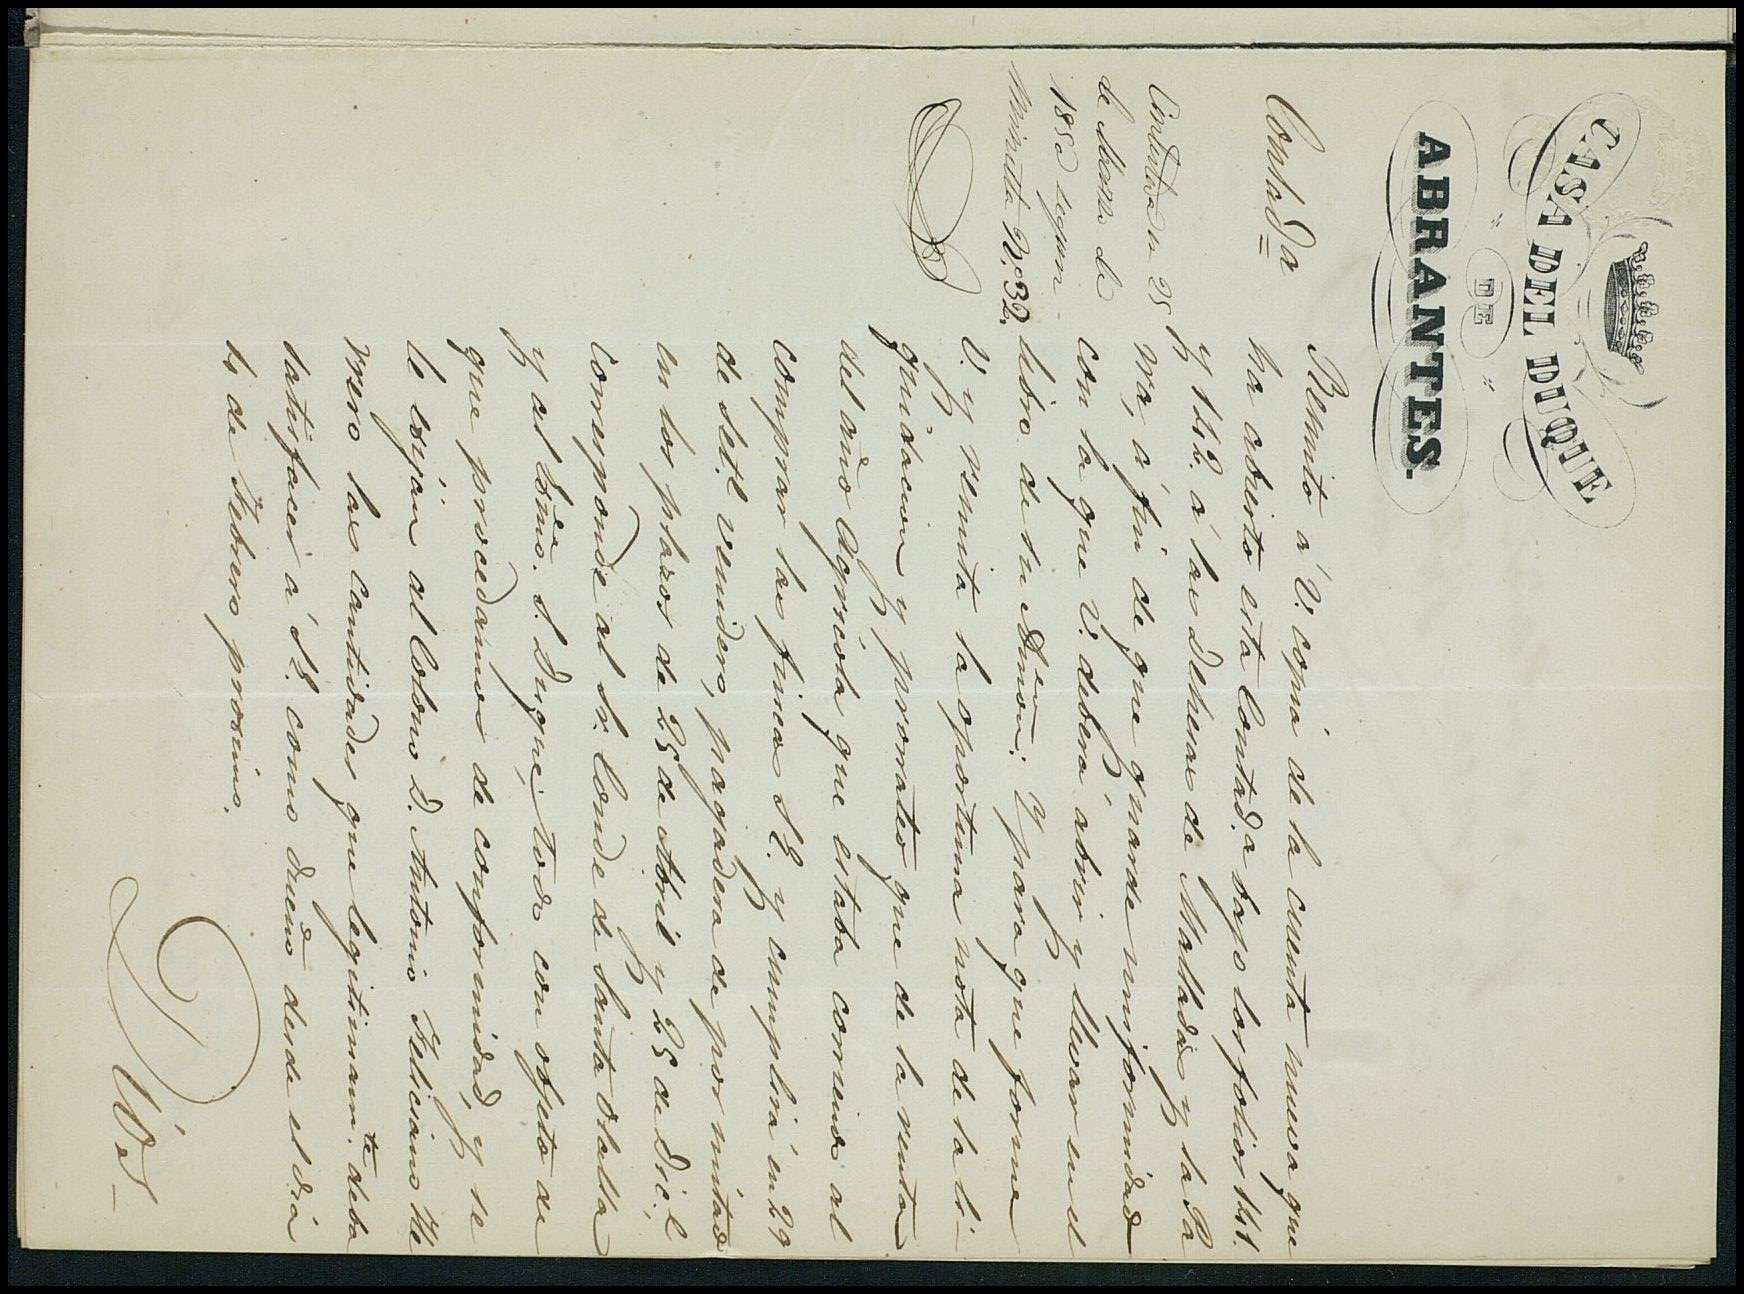 CASA DEL DUQUE
DE
ABRANTES.
Contad.a
Contestada en 25
de Marzo de
1850 segun
minuta N.º 32.
Remito á V. copia de la cuenta nueva que
ha abierto esta Contad.a bajo los folios 141.
y 142. á las Dehesas de Malladas y la
ra, á fin de que guarde uniformidad
con la que V. deberá abrir y llevar en el
libro de su Admon. Y para que forme
V. y remita la oportuna nota de la li-
quidacion y prorrateo que de la renta
del año Agricola que estaba corriendo al
comprar las fincas S.E. y cumplirá en 29
de Set.e venidero, pagadera de por mitad
en los plazos de 25 de Abril y 25 de Dic.e
corresponde al Sr. Conde de Santa Olalla
y al Ecmo. S. Duque; todo con objeto de
que procedamos de conformidad, y se
le exijan al Colono D. Antonio Feliciano
mero las cantidades que legitimam.te deba
satisfacer á S.E. como dueño desde el dia
4 de Febrero proximo.